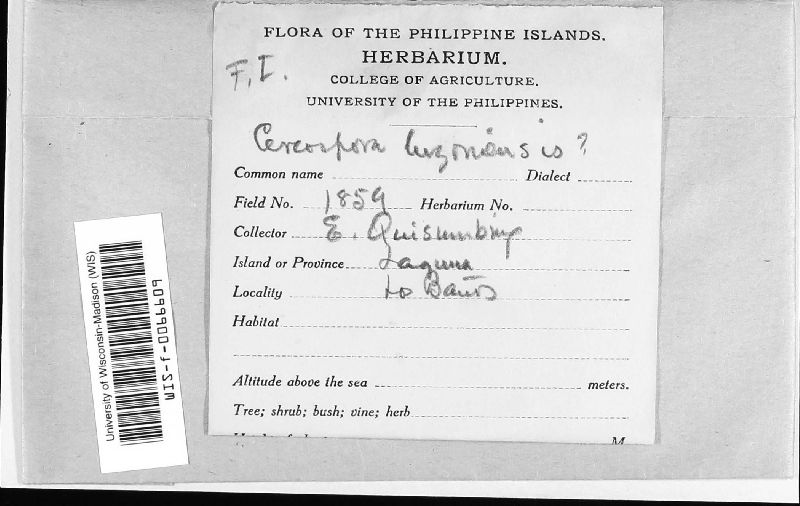 FLORA OF THE PHILIPPINE ISLANDS.
HERBARIUM.
F, I.
COLLEGE OF AGRICULTURE.
UNIVERSITY OF THE PHILIPPINES.
Cercospora luzoniensis?
Common name Dialect
Field No. 1859 Herbarium No.
Collector E. Quisumbing
Island or Province Laguna
Locality Los Baños
Habitat
Altitude above the sea meters.
Tree; shrub; bush; vine; herb
M
University of Wisconsin-Madison (WIS)
WIS-f-0066609